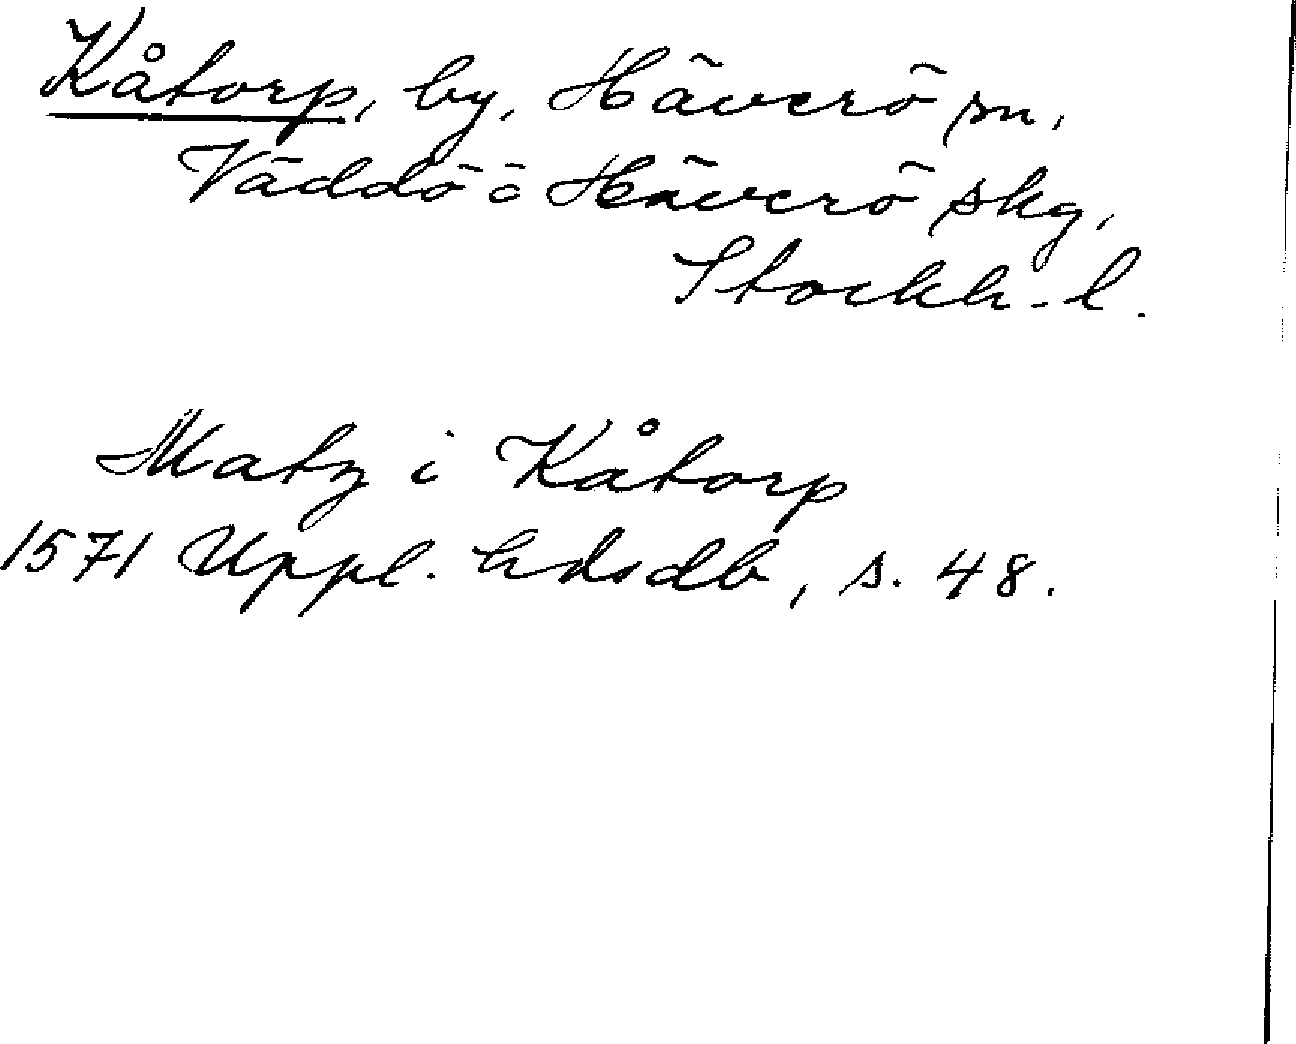 Kåtorp, by, Häverö sn,
Väddö o Häverö skg,
Stockh. l.
Matz i Kåtorp
1571 Uppl. hdsdb, s. 48.